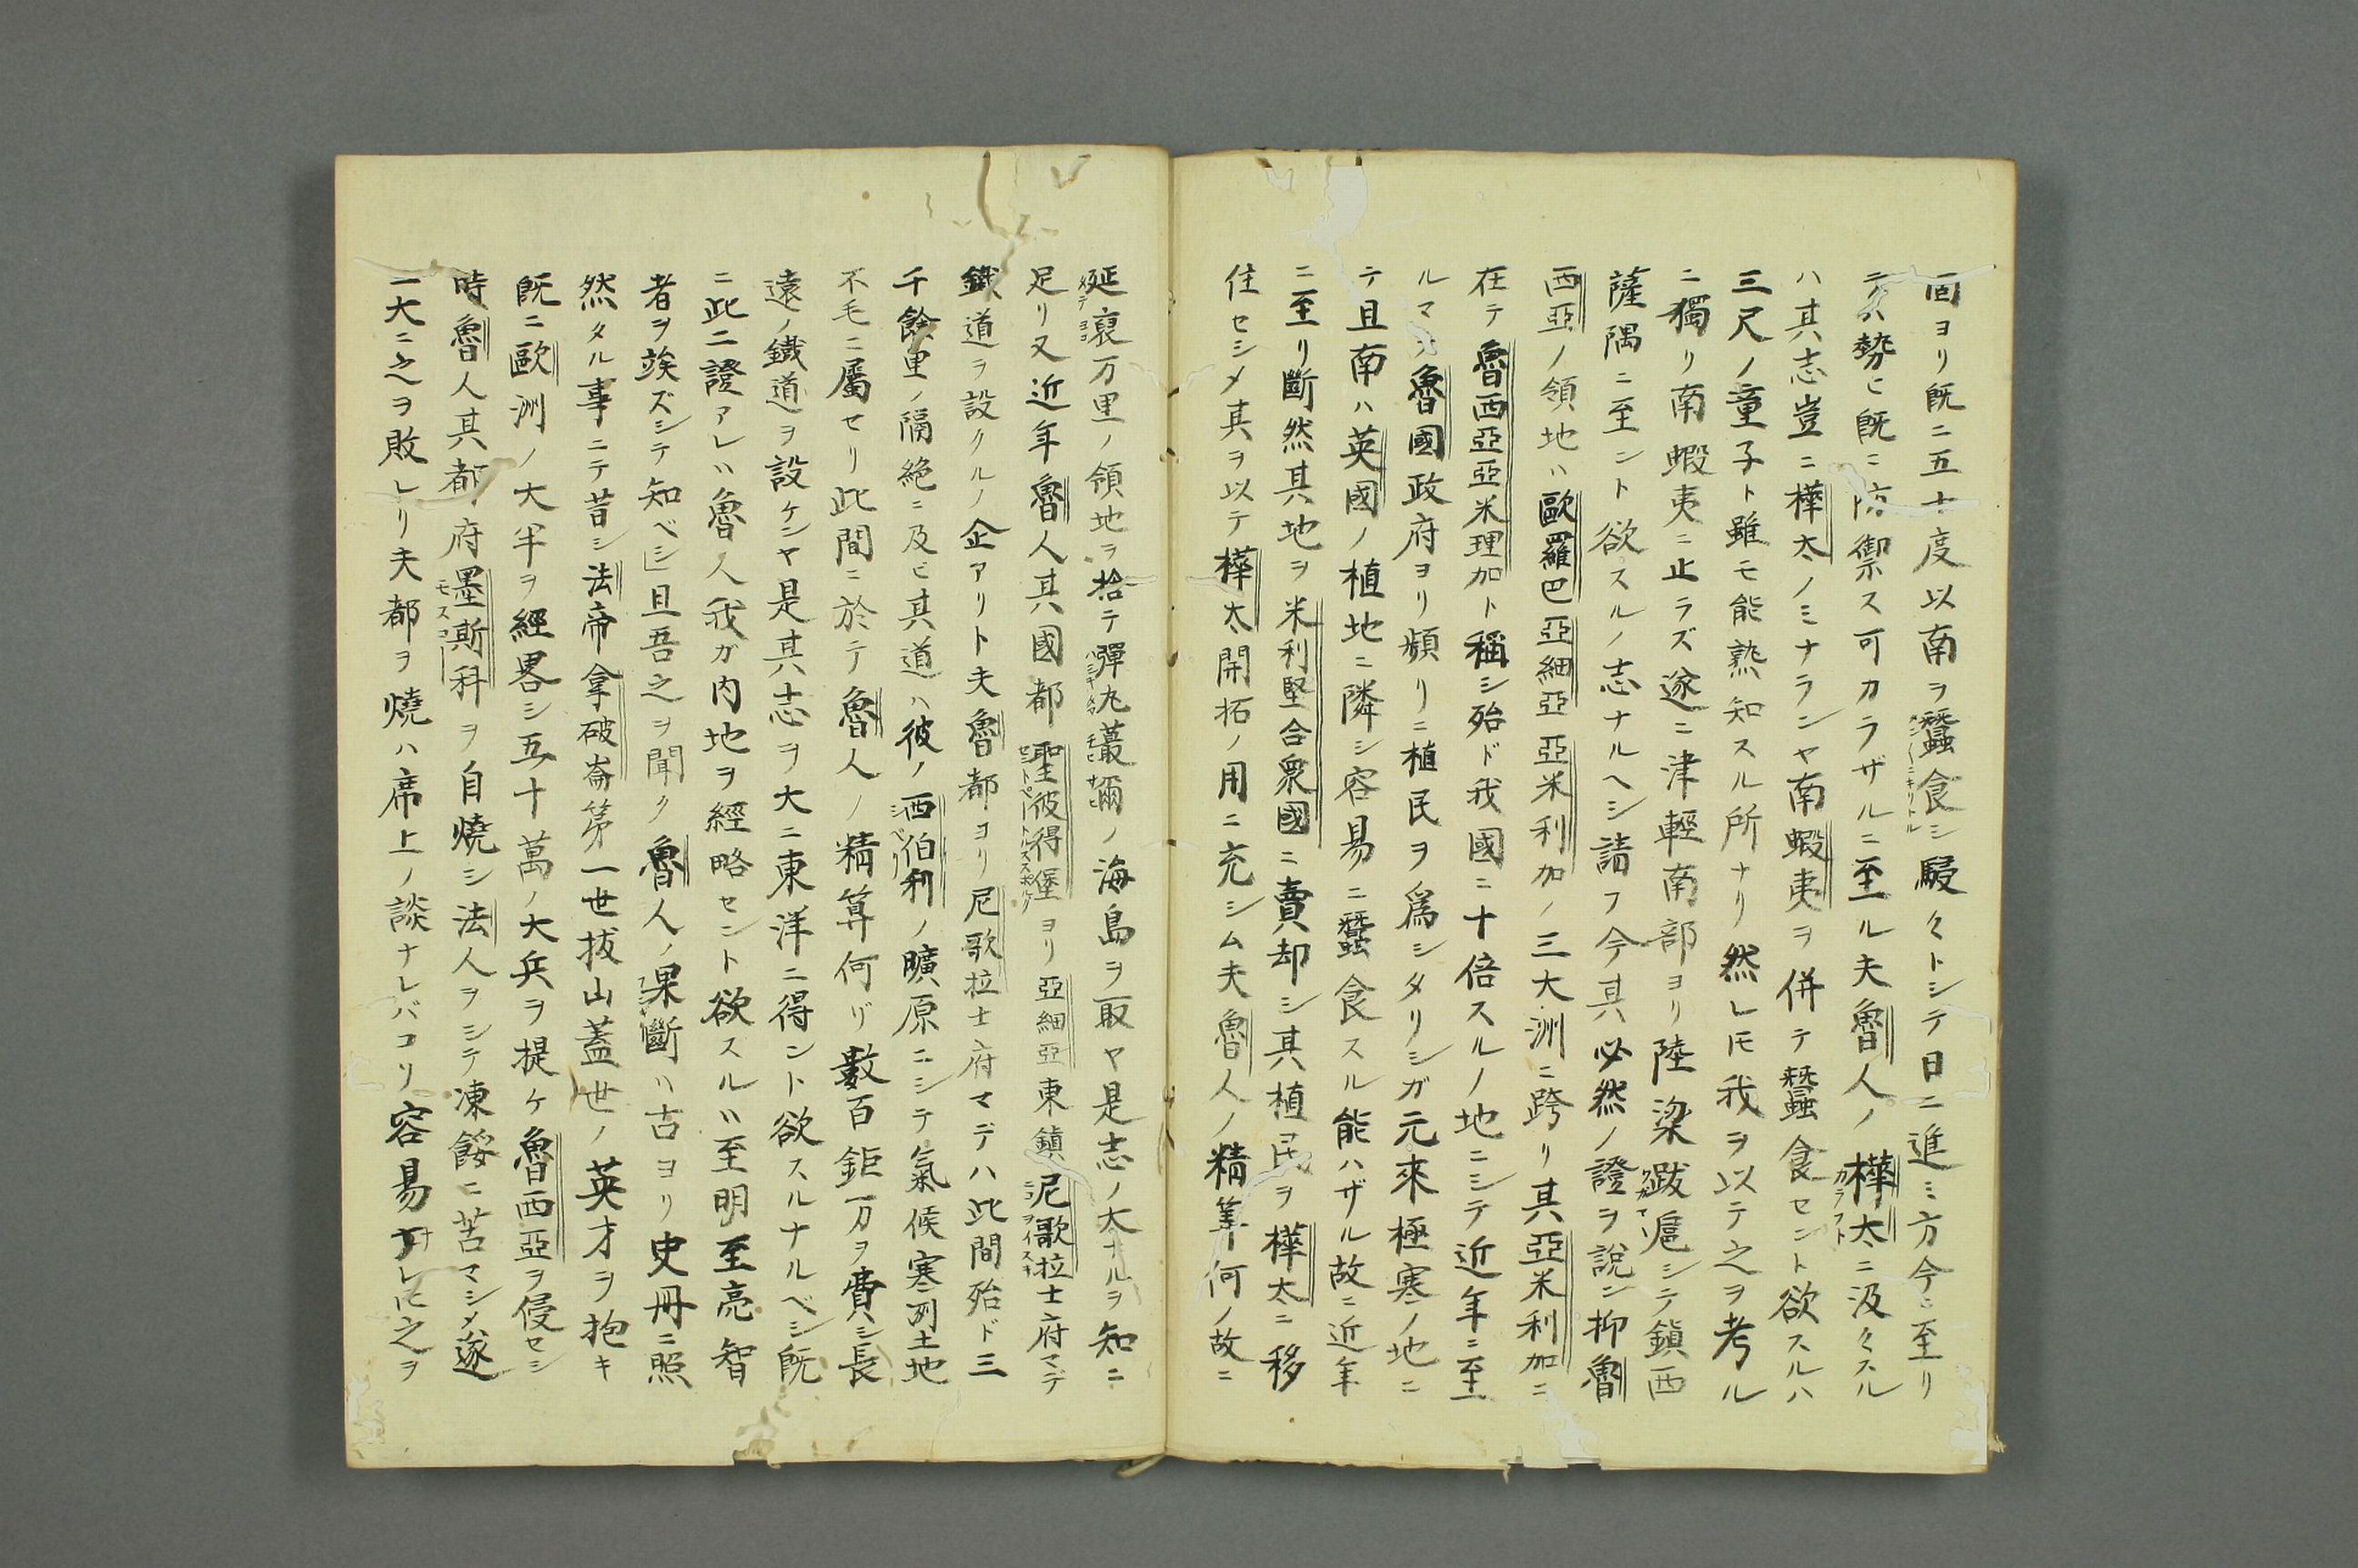 面ヨリ既ニ五十度以南ヲ蠶食シ駸々トシテ日ニ進ミ方今ニ至リ
テハ勢ヒ既ニ防禦ス可カラザルニ至ル夫魯人ノ樺太ニ汲々スル
ハ其志豈ニ樺太ノミナランヤ南蝦夷ヲ併テ蠶食セント欲スルハ
三尺ノ童子ト雖モ能熟知スル所ナリ然レ𪜈我ヲ以テ之ヲ考ル
ニ獨リ南蝦夷ニ止ラズ遂ニ津輕南部ヨリ陸梁跋扈シテ鎭西
薩隅ニ至ント欲スルノ志ナルヘシ請フ今其必然ノ證ヲ説ン抑魯
西亞ノ領地ハ歐羅巴亞細亞亞米利加ノ三大洲ニ跨リ其亞米利加ニ
在テ魯西亞亞米理加ト稱シ殆ド我國ニ十倍スルノ地ニシテ近年ニ至
ルマデ魯國政府ヨリ頻リニ植民ヲ爲シタリシガ元來極寒ノ地ニ
テ且南ハ英國ノ植地ニ隣シ容易ニ蠶食スル能ハザル故ニ近年
ニ至リ斷然其地ヲ米利堅合衆國ニ賣却シ其植民ヲ樺太ニ移
住セシメ其ヲ以テ樺太開拓ノ用ニ充シム夫魯人ノ精筭何ノ故ニ
延袤万里ノ領地ヲ捨テ彈丸蕞爾ノ海島ヲ取ヤ是志ノ大ナルヲ知ニ
足リ又近年魯人其國都聖彼得堡ヨリ亞細亞東鎭尼歌拉士府マデ
鐵道ヲ設クルノ企アリト夫魯都ヨリ尼歌拉士府マデハ此間殆ド三
千餘里ノ隔絶ニ及ビ其道ハ彼ノ西伯利ノ曠原ニシテ氣候寒列土地
不毛ニ屬セリ此間ニ於テ魯人ノ精算何ゾ數百鉅万ヲ費シ長
遠ノ鐵道ヲ設ケンヤ是其志ヲ大ニ東洋ニ得ント欲スルナルベシ既
ニ此二證アレハ魯人我ガ内地ヲ經略セント欲スルハ至明至亮智
者ヲ竢ズシテ知ベシ且吾之ヲ聞ク魯人ノ果斷ハ古ヨリ史册ニ照
然タル事ニテ昔シ法帝拿破崙第一世拔山蓋世ノ英才ヲ抱キ
既ニ歐洲ノ大半ヲ經畧シ五十萬ノ大兵ヲ提ケ魯西亞ヲ侵セシ
時魯人其都府墨斯科ヲ自燒シ法人ヲシテ凍餒ニ苦マシメ遂
ニ大ニ之ヲ敗レリ夫都ヲ燒ハ席上ノ談ナレバコソ容易ナレ𪜈之ヲ